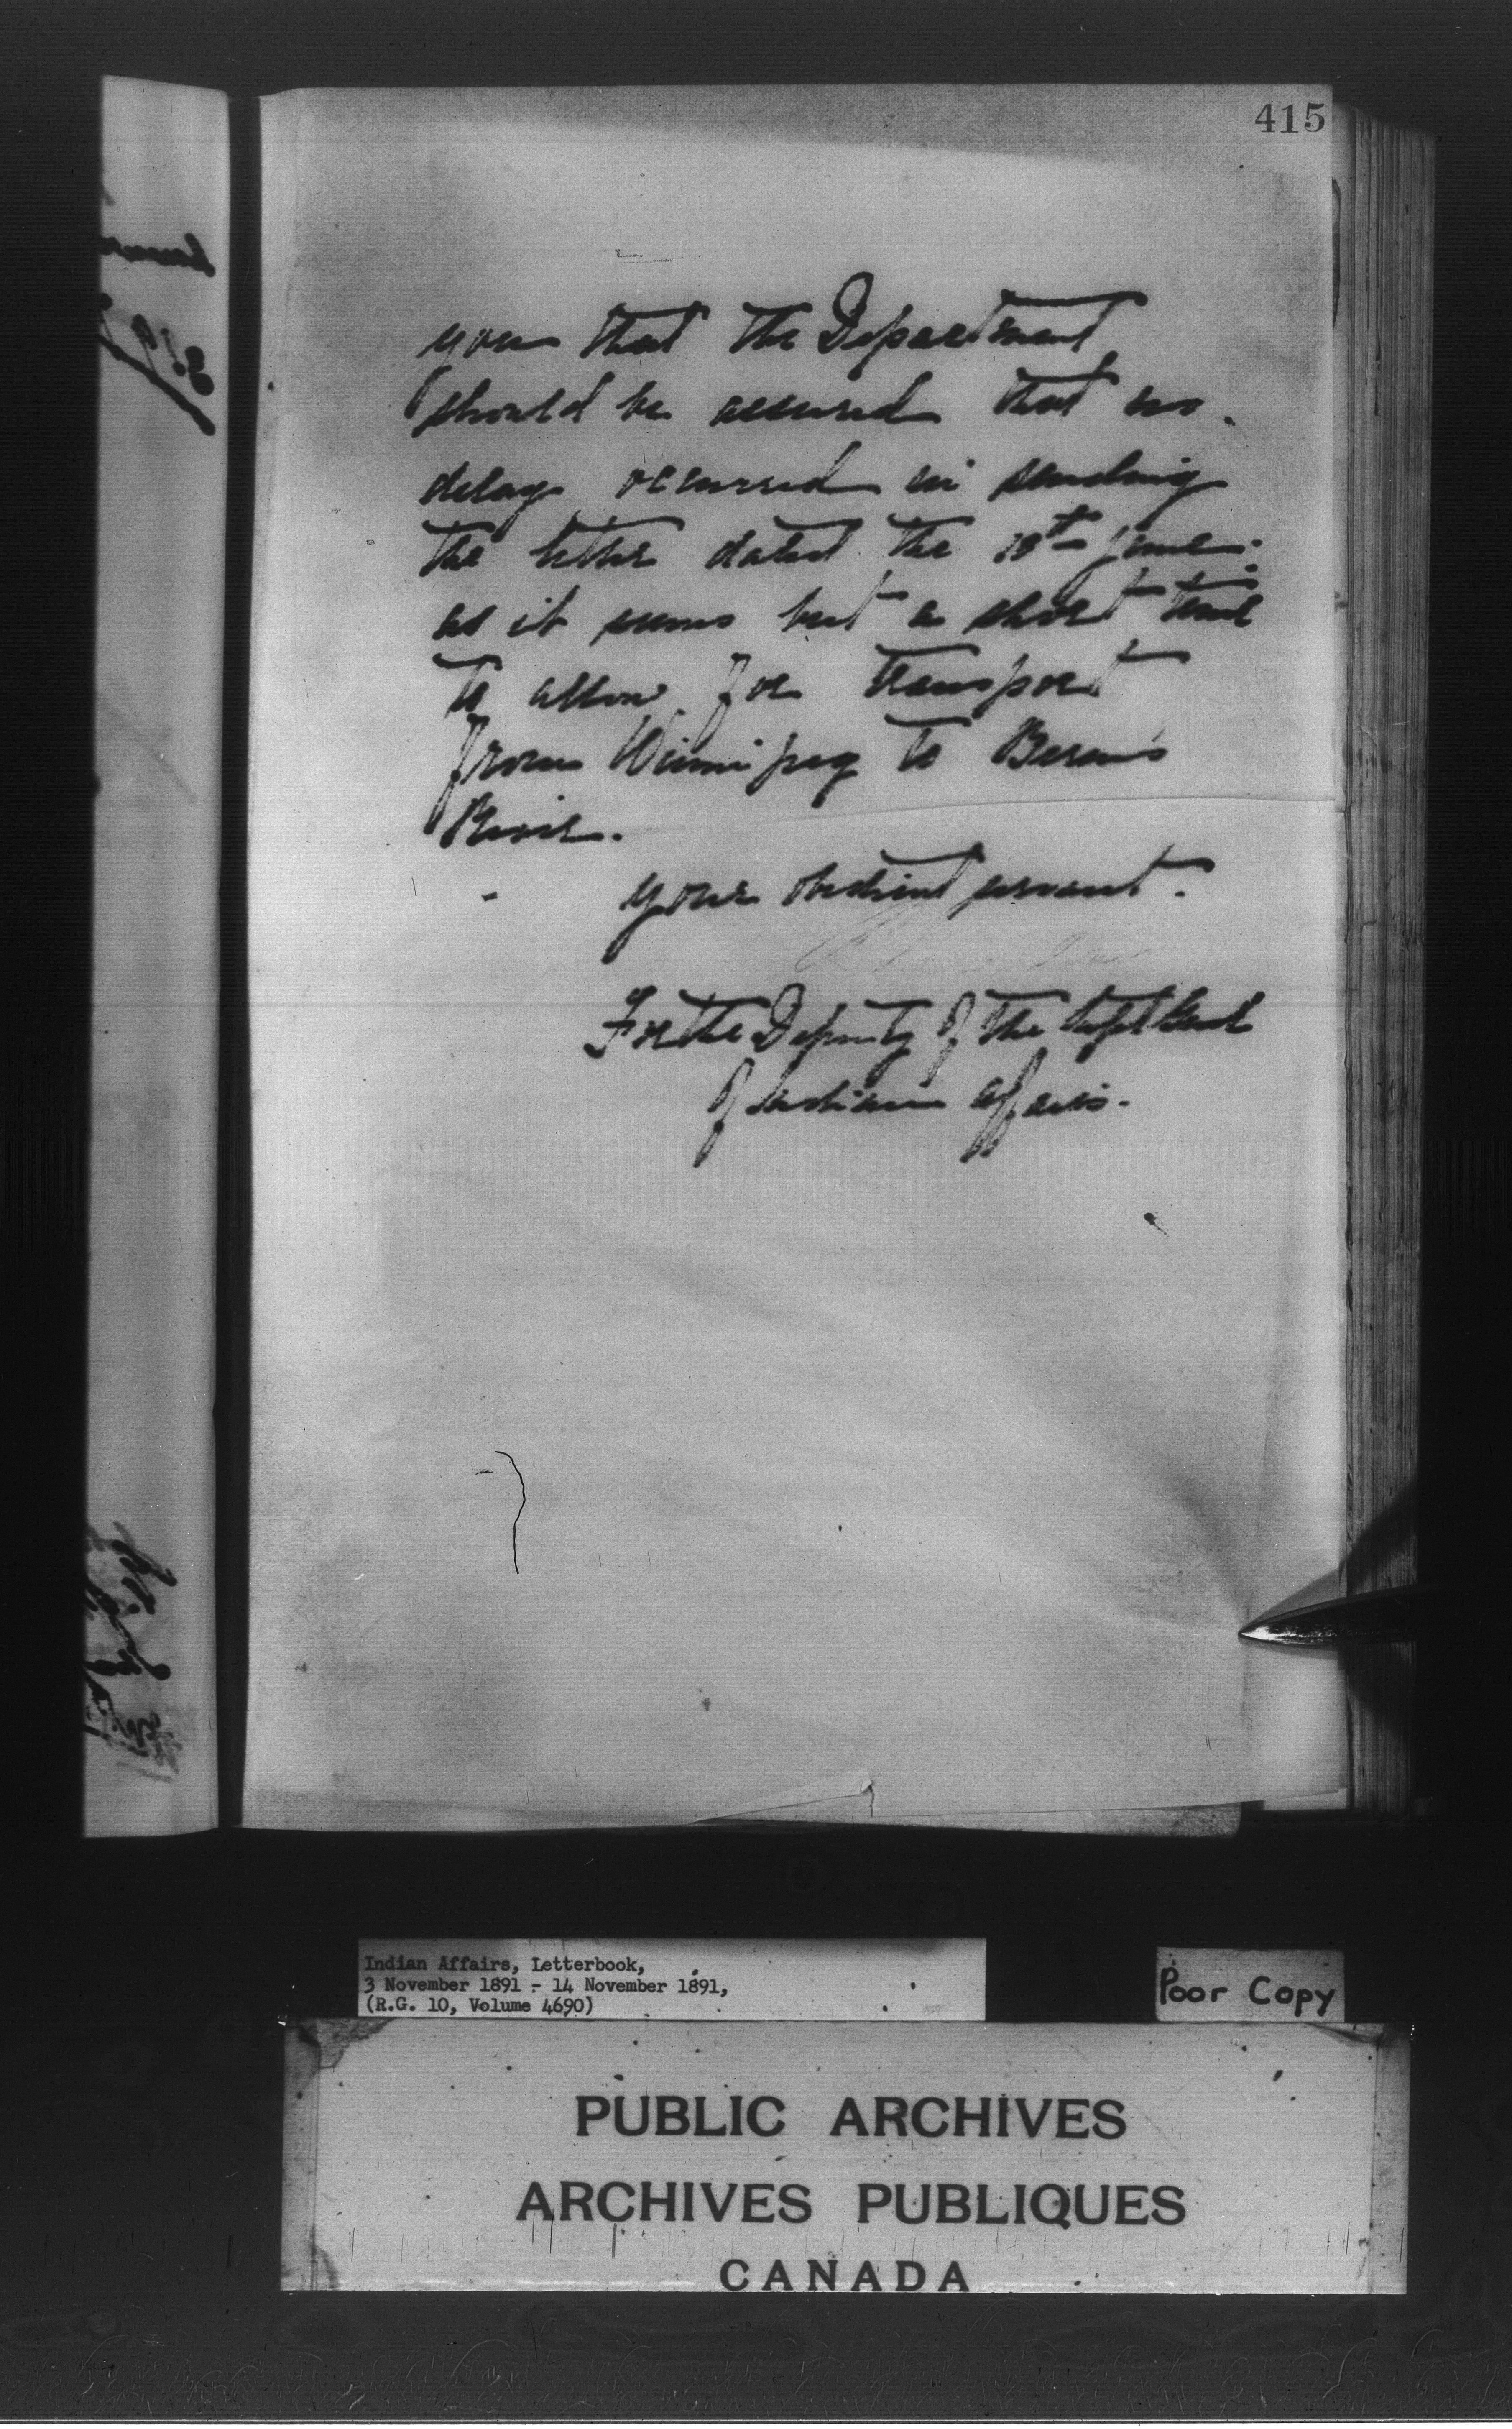 415
you that the Department
should be assured that no
delay occurred in sending
the letter dated the 18th June.
as it seems but a short time
to allow for transport
from Winnipeg to Berens
River.
your obedient servant.
For the Deputy of the Supt Genl
of Indian Affairs.
Indian Affairs, Letterbook,
3 November 1891 - 14 November 1891,
(R.G. 10, Volume 4690)
Poor Copy
PUBLIC ARCHIVES
ARCHIVES PUBLIQUES
CANADA